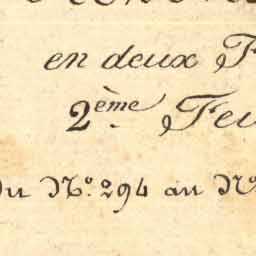 en deux F
2ème Feu
Du No. 294 au No